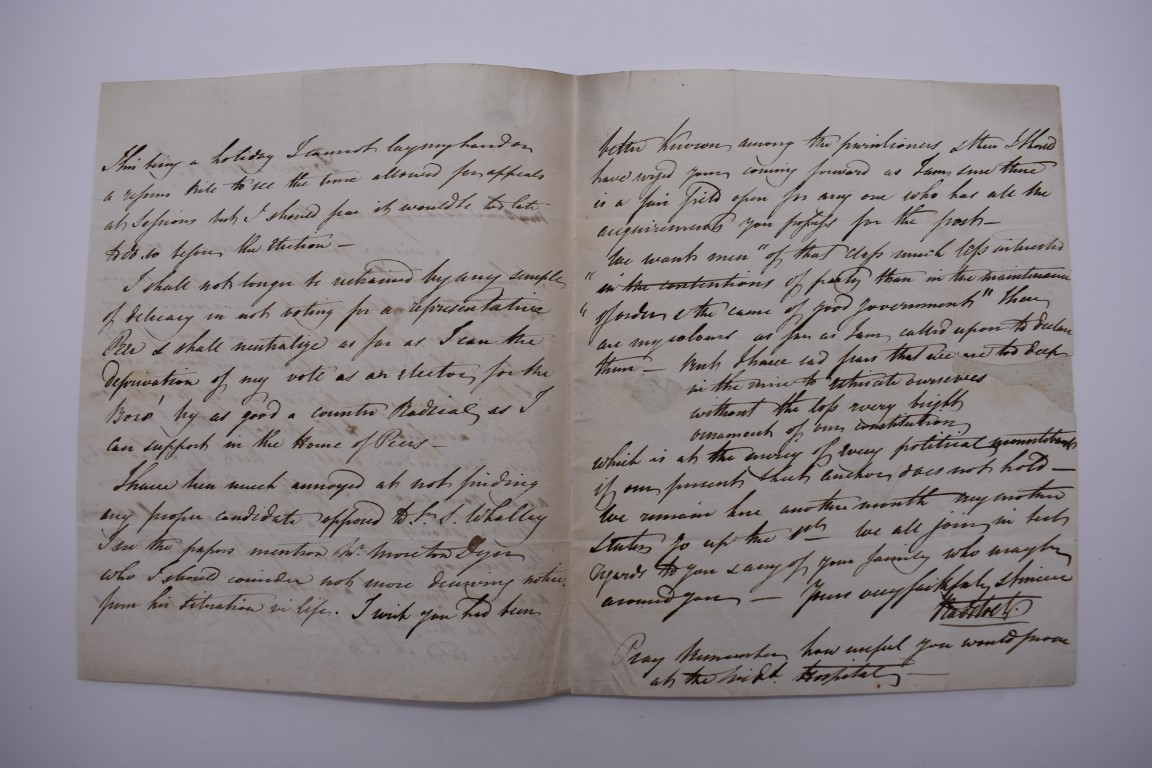 This being a holiday I cannot lay my hand on
a reform Bill to see the time allowed for appeals
at Sessions but I should fear it would be too late
to do so before the Election —
I shall not longer be restrained by any scruple
of delicacy in not voting for a representative
Peer & shall neutralize as far as I can the
deprivation of my vote as an elector for the
Boro' by as good a counter Radical as I
can support in the House of Peers —
I have been much annoyed at not finding
any proper candidate opposed to Sr. S. Whalley
I see the papers mention Mr. Moreton Dyer
who I should consider not more deserving notice
from his situation in life. I wish you had been
better known among the parishioners & then I should
have urged your coming forward as I am sure there
is a fair field open for any one who has all the
acquirements you possess for the post —
We want men "of that class much less interested
" in the contentions of party than in the maintenance
" of order & the cause of good government" These
are my colours as far as I am called upon to declare
them — But I have sad fears that we are too deep
in the mire to extricate ourselves
without the loss every bright
ornament of our constitution
which is at the mercy of every political
if our present sheet anchor does not hold —
We remain here another month my mother
Sisters go up the 1st We all join in best
regards to you & any of your family who may be
around you — Yours very faithfully & sincere

Pray Remember how useful you would prove
at the Midd. Hospital —